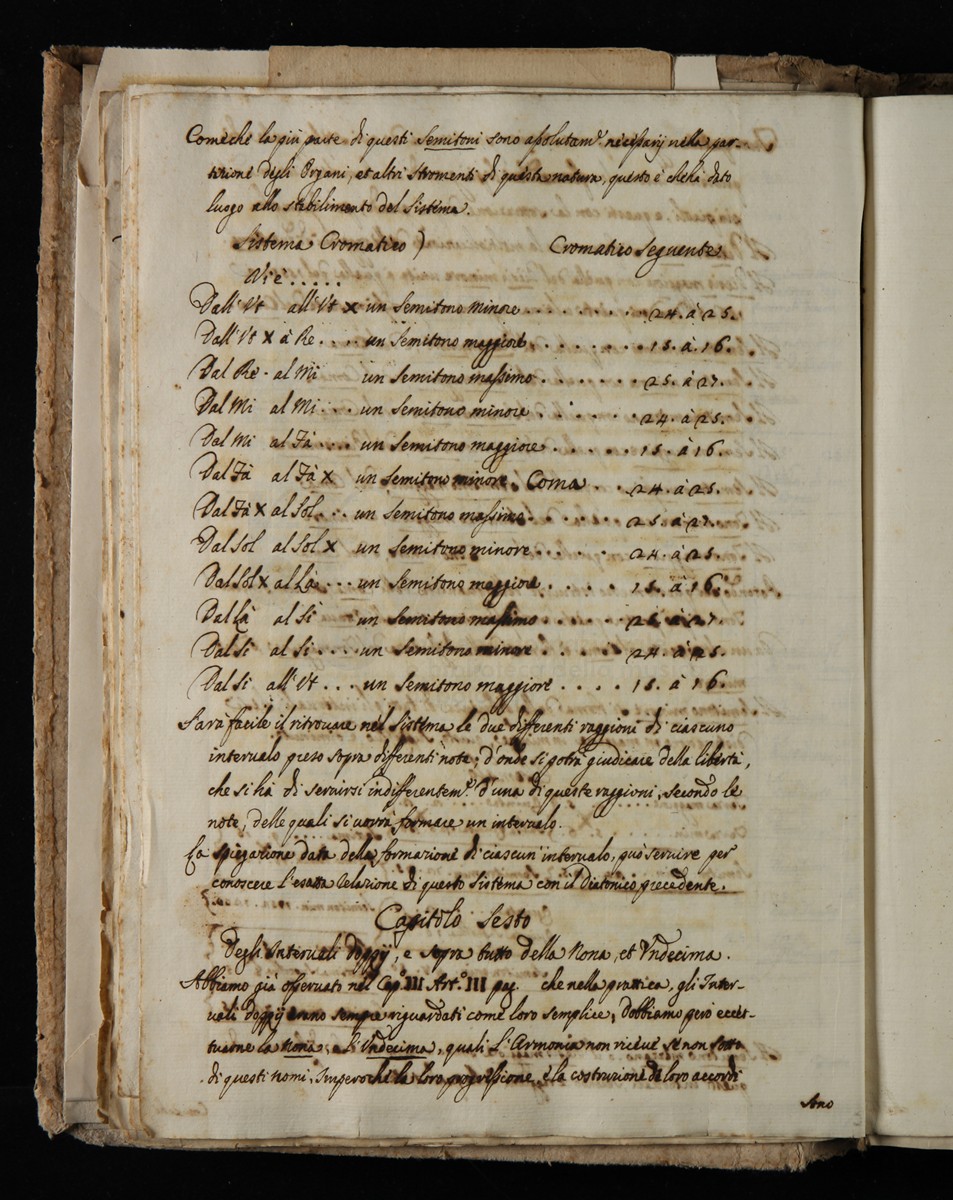 Comeche la più parte di questi Semitoni sono assolutam.te necessarij nella par-
tizione degli Organi, et altri stromenti di questa natura, questo è che hà dato
luogo allo stabilimento del Sistema.
Sistema Cromatico ) Cromatico Seguente
Vi è . . . . .
Dall' Vt all' Vt X un Semitono minore . . . . . . . . 24. à 25.
Dall' Vt X à Re . . . . un Semitono maggiore . . . . . . . 15. à. 16.
Dal Re - al Mi un Semitono massimo . . . . . . . 25. à 27.
Dal Mi al Mi . . . un Semitono minore . . . . . . 24. à 25.
Dal Mi al Fà . . . . un Semitono maggiore . . . . . . 15. à 16.
Dal Fà al Fà X un Semitono minore. Coma . . 24. à 25.
Dal Fà X al Sol . . . un Semitono massimo . . . . . . 25. à 27.
Dal Sol al Sol X un Semitono minore . . . . . 24. à 25.
Dal Sol X al Là . . . un Semitono maggiore . . . . . 15. à 16.
Dal Là al Si un Semitono massimo . . . . . 25. à 27.
Dal Si al Si . . . un Semitono minore . . . . . 24. à 25.
Dal Si all' Vt . . . un Semitono maggiore . . . . 15. à 16.
Sarà facile il ritrouare nel Sistema le due differenti raggioni di ciascuno
interualo preso sopra differenti note, d'onde si potrà giudicare della libertà,
che si hà di seruirsi indifferentem.te d'una di queste raggioni, secondo le
note, delle quali si uorrà formare un interualo.
La spiegazione data della formazione di ciascun' interualo, può seruire per
conoscere l'esatta relazione di questo Sistema con il Diatonico precedente.
Capitolo Sesto
Degli Interuali doppij, e sopra tutto della Nona, et Vndecima.
Abbiamo già osseruato nel Cap.o III Art.o III pag. che nella prattica, gli Inter-
uali doppij erano sempre riguardati come loro semplice, dobbiamo però eccet-
tuarne la Nona, e l'Vndecima, quali l'Armonia non riceue se non sotto
di questi nomi, Imperoche la loro progressione, e la costruzione de loro accordi